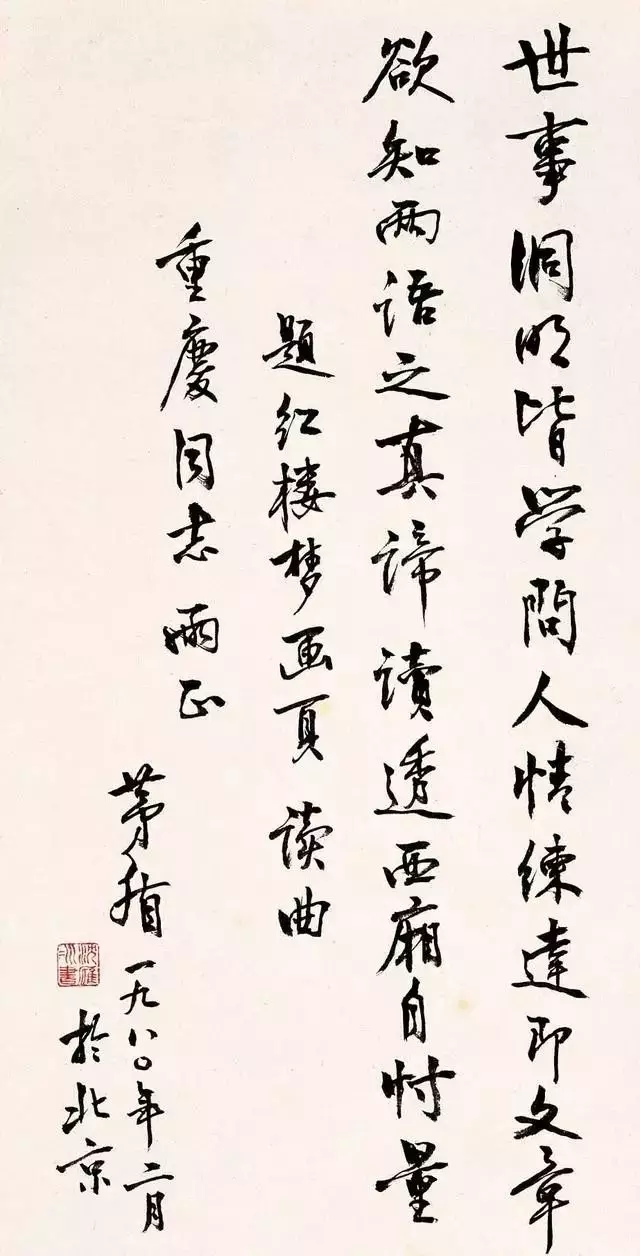 世事洞明皆学問人情練達即文章
欲知兩语之真谛讀透西廂自忖量
題红楼梦画頁 读曲
重慶同志 兩正
茅盾 一九八〇年二月
於北京
沈雁冰書